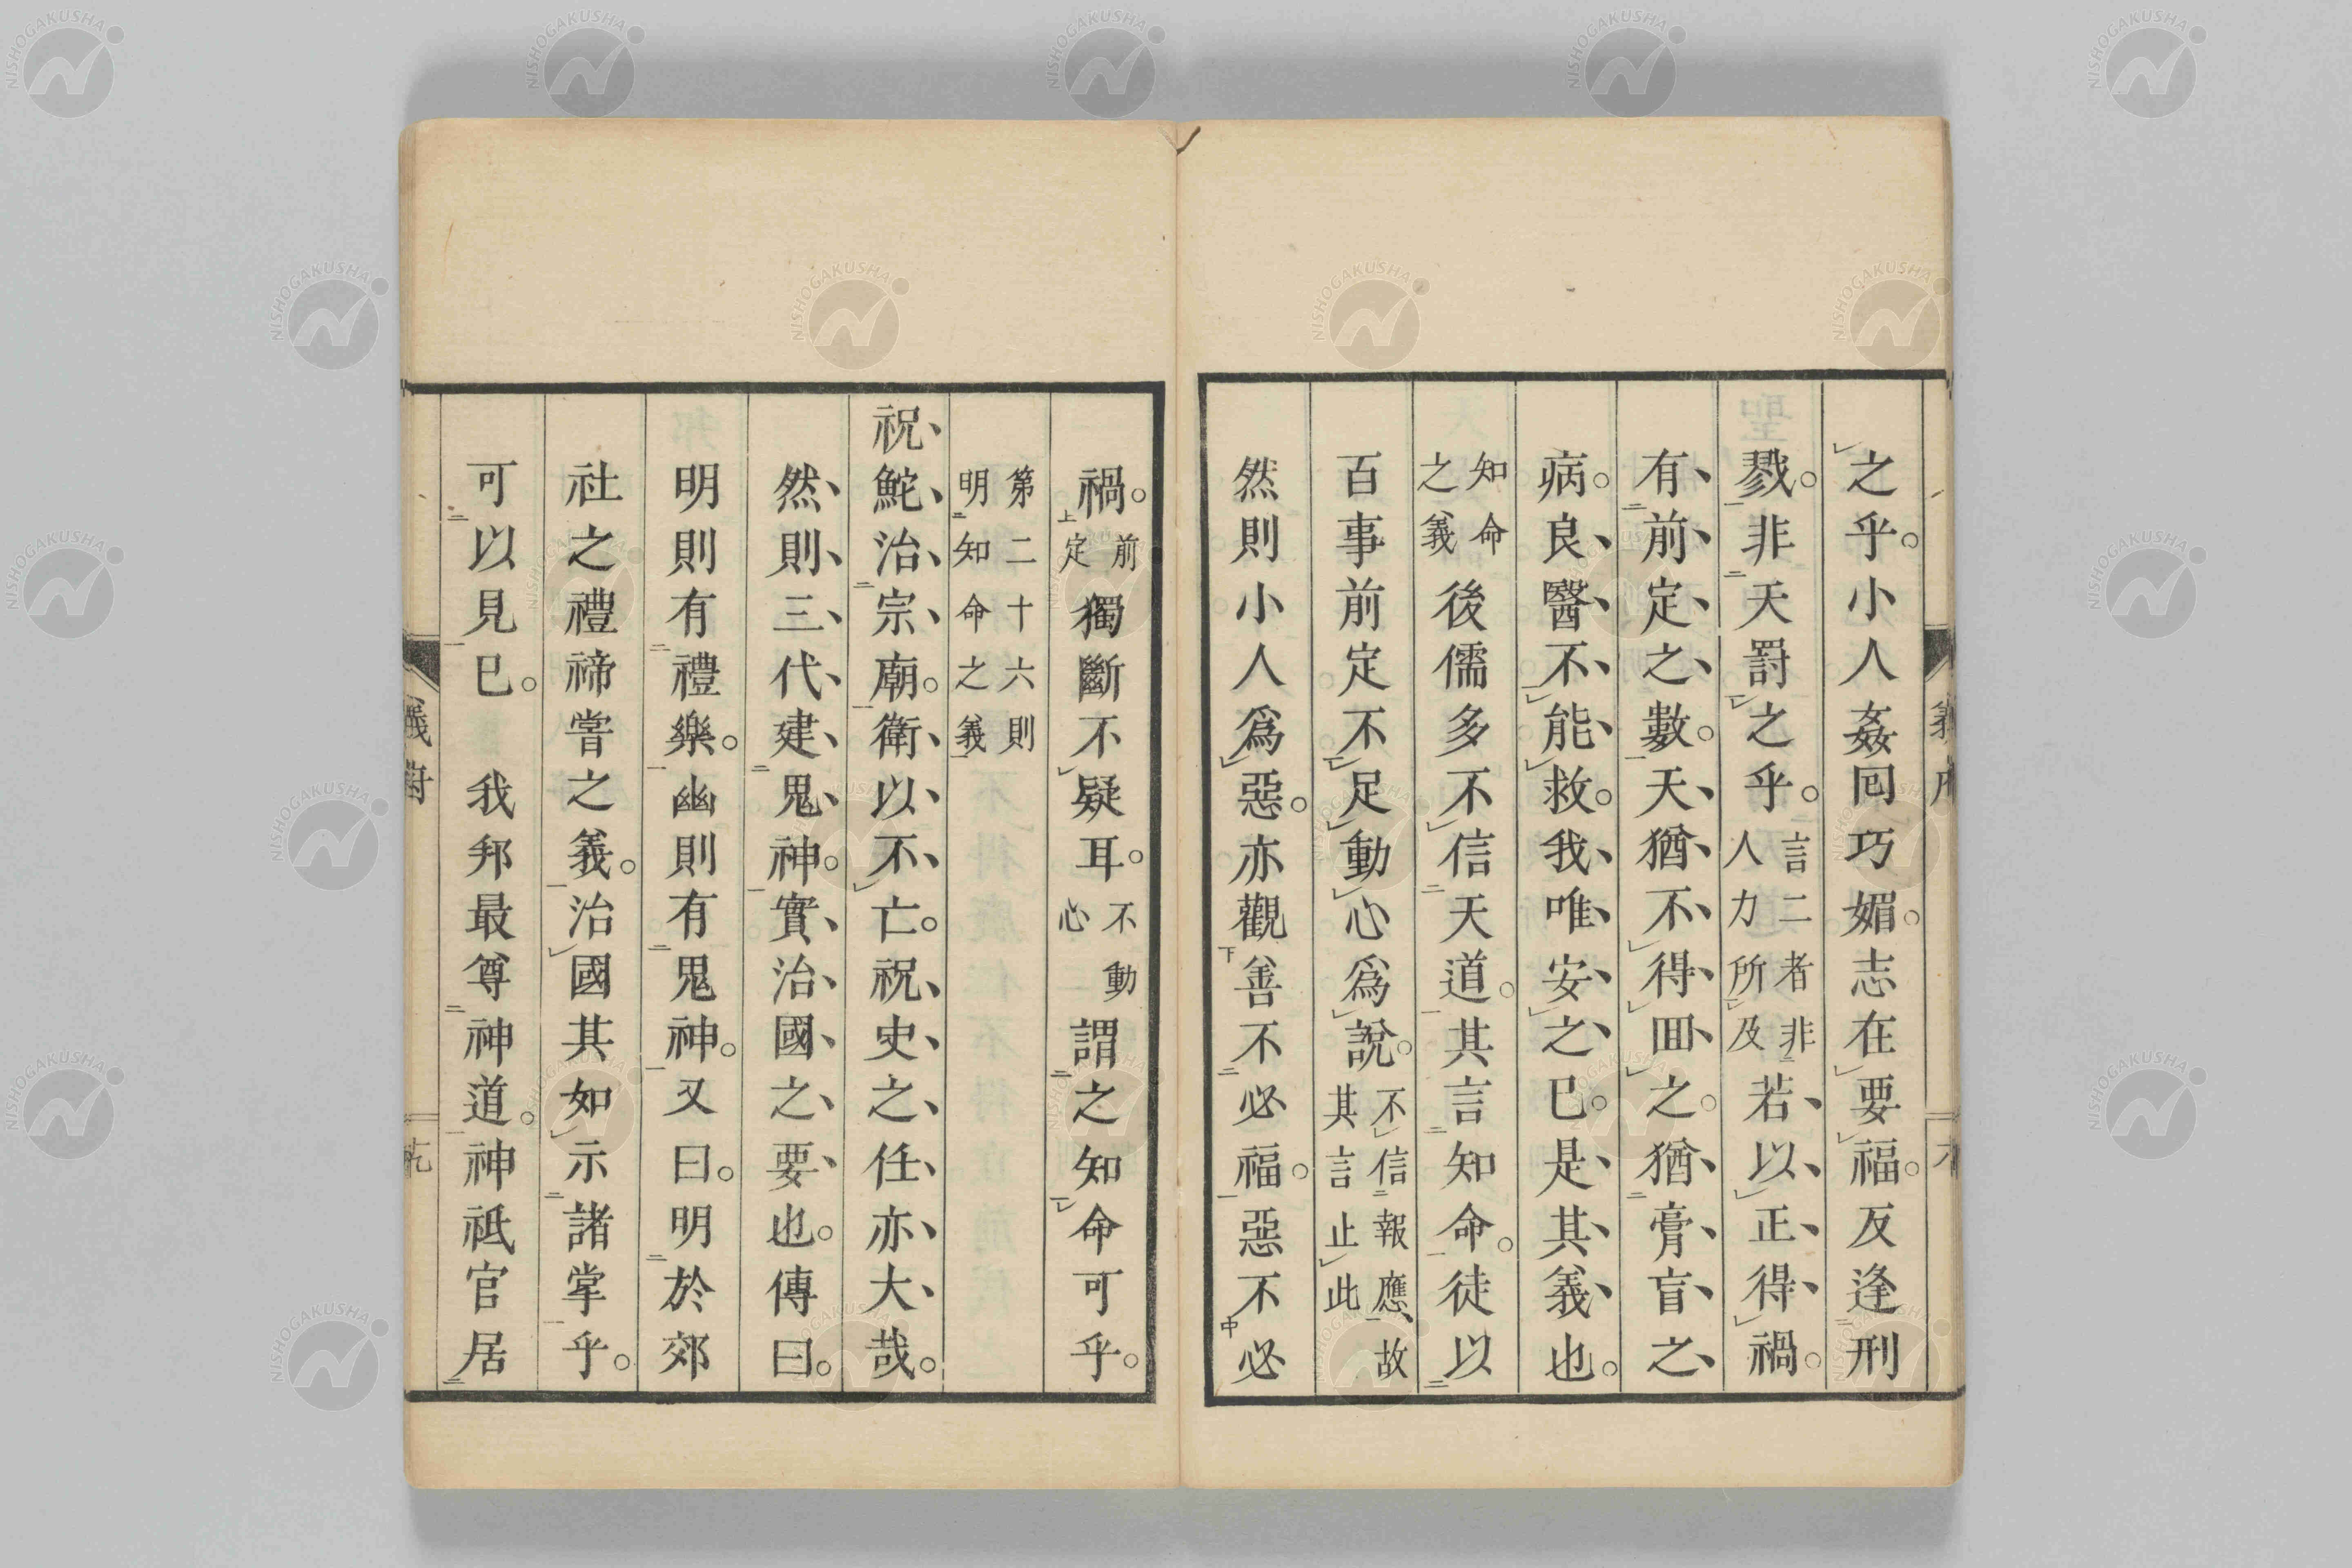 之乎。小人姦回巧媚。志在要福。反逢刑
戮。非天罰之乎。言二者非人力所及若以正得禍。
有前定之數。天猶不得回之。猶膏肓之
病。良醫不能救。我唯安之已。是其義也。
知命之義後儒多不信天道。其言知命。徒以
百事前定不足動心爲說。不信報應、故其言止此
然則小人爲惡。亦觀善不必福。惡不必
禍。前定獨斷不疑耳。不動心謂之知命可乎。
第二十六則
明知命之義
祝鮀治宗廟。衛以不亡。祝史之任亦大哉。
然則三代建鬼神。實治國之要也。傳曰。
明則有禮樂。幽則有鬼神。又曰。明於郊
社之禮禘嘗之義。治國其如示諸掌乎。
可以見已。我邦最尊神道。神祇官居
NISHOGAKUSHA